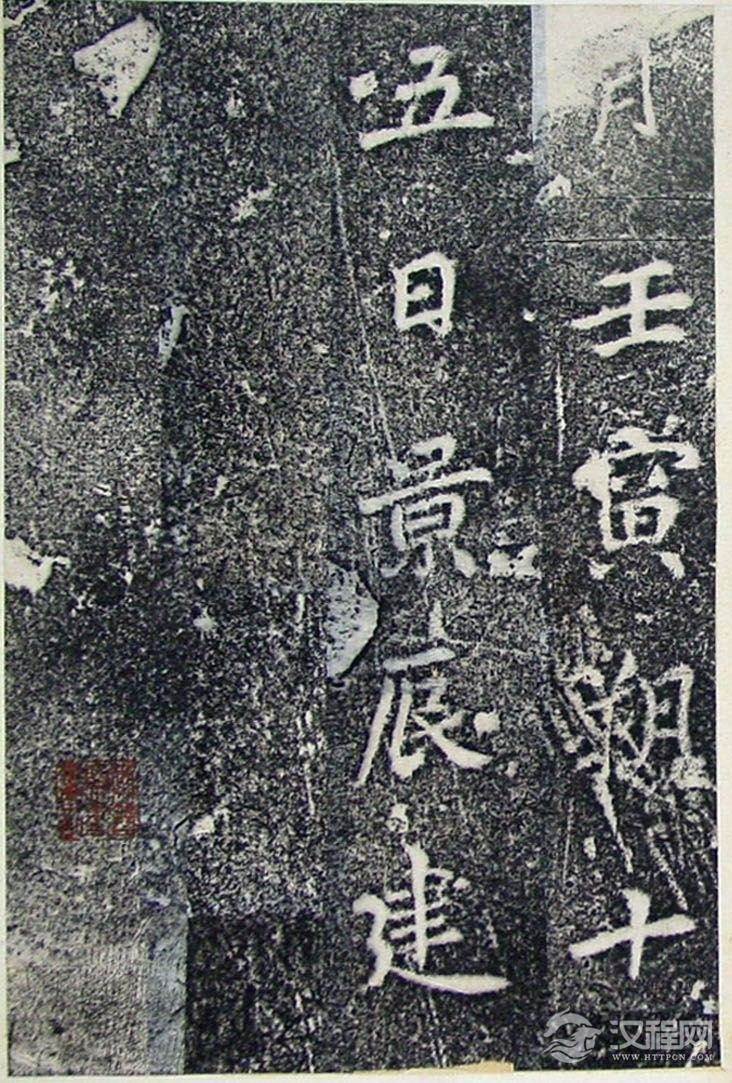 月壬寅朔十
五日景辰建
汉程网
WWW.HTTPCN.COM